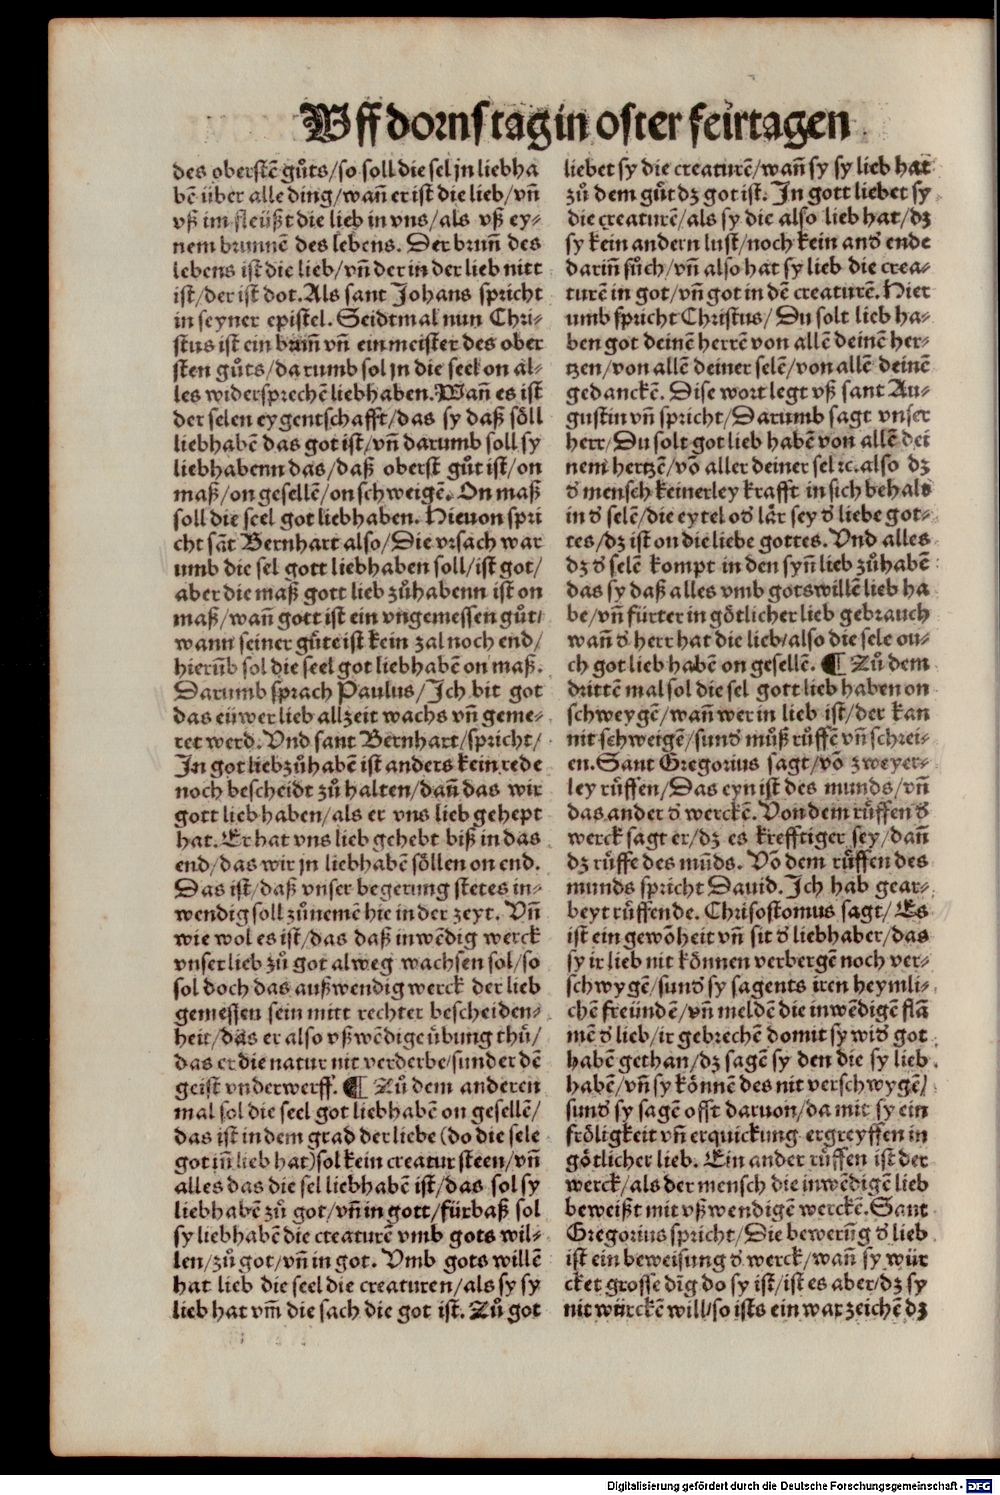 Vff dornstag in oster feirtagen
des oberstē gůts/so soll die sel jn liebha
bē über alle ding/wañ er ist die lieb/vñ
vß im fleüßt die lieb in vns/als vß ey⸗
nem brunnē des lebens. Der brun̄ des
lebens ist die lieb/vñ der in der lieb nitt
ist/der ist dot. Als sant Johans spricht
in seyner epistel. Seidtmal nun Chri⸗
stus ist ein bam̄ vñ ein meister des ober
sten gůts/darumb sol jn die seel on al⸗
les widersprechē liebhaben. Wañ es ist
der selen eygentschafft/das sy daß söll
liebhabē das got ist/vñ darumb soll sy
liebhabenn das/daß oberst gůt ist/on
maß/on gesellē/on schweigē. On maß
soll die seel got liebhaben. Hieuon spri
cht sāt Bernhart also/Die vrsach war
umb die sel gott liebhaben soll/ist got/
aber die maß gott lieb zůhabenn ist on
maß/wañ gott ist ein vngemessen gůt/
wann seiner gůte ist kein zal noch end/
hierūb sol die seel got liebhabē on maß.
Darumb sprach Paulus/Ich bit got
das eüwer lieb allzeit wachs vñ geme⸗
ret werd. Vnd sant Bernhart/spricht/
In got liebzůhabē ist anders kein rede
noch bescheidt zů halten/dañ das wir
gott lieb haben/als er vns lieb gehept
hat. Er hat vns lieb gehebt biß in das
end/das wir jn liebhabē söllen on end.
Das ist/daß vnser begerung stetes in⸗
wendig soll zůnemē hie in der zeyt. Vñ
wie wol es ist/das daß inwēdig werck
vnser lieb zů got alweg wachsen sol/so
sol doch das außwendig werck der lieb
gemessen sein mitt rechter bescheiden⸗
heit/das er also vßwēdige übung thů/
das er die natur nit verderbe/sunder dē
geist vnderwerff. ¶ Zů dem anderen
mal sol die seel got liebhabē on gesellē/
das ist in dem grad der liebe (do die sele
got jn̄ lieb hat) sol kein creatur steen/vñ
alles das die sel liebhabē ist/das sol sy
liebhabē zů got/vñ in gott/fürbaß sol
sy liebhabē die cteaturē vmb gots wil⸗
len/zů got/vñ in got. Vmb gots willē
hat lieb die seel die creaturen/als sy sy
lieb hat vm̄ die sach die got ist. Zů got
liebet sy die creaturē/wañ sy sy lieb hat
zů dem gůt dz got ist. In gott liebet sy
die creaturē/als sy die also lieb hat/dz
sy kein andern lust/noch kein and̄ ende
darin̄ sůch/vñ also hat sy lieb die crea⸗
turē in got/vñ got in dē creaturē. Hier
umb spricht Christus/Du solt lieb ha⸗
ben got deinē herrē von allē deinē her⸗
tzen/von allē deiner selē/von allē deinē
gedanckē. Dise wort legt vß sant Au⸗
gustin vñ spricht/Darumb sagt vnser
herr/Du solt got lieb habē von allē dei
nem hertzē/vō aller deiner sel ꝛc. also dz
d̄ mensch keinerley krafft in sich behalt
in d̄ selē/die eytel od̄ lår sey d̄ liebe got⸗
tes/dz ist on die liebe gottes. Vnd alles
dz d̄ selē kompt in den syn̄ lieb zůhabē
das sy daß alles vmb gotswillē lieb ha
be/vñ fürter in götlicher lieb gebrauch
wañ d̄ herr hat die lieb/also die sele ou⸗
ch got lieb habē on gesellē. ¶ Zů dem
drittē mal sol die sel gott lieb haben on
schweygē/wañ wer in lieb ist/der kan
nit schweigē/sund̄ můß růffē vñ schrei⸗
en. Sant Gregorius sagt/vō zweyer⸗
ley růffen/Das eyn ist des munds/vñ
das ander d̄ werckē. Von dem růffen d̄
werck sagt er/dz es krefftiger sey/dañ
dz růffe des mūds. Vō dem růffen des
munds spricht Dauid. Ich hab gear⸗
beyt růffende. Chrisostomus sagt/Es
ist ein gewōheit vñ sit d̄ liebhaber/das
sy ir lieb nit können verbergē noch ver⸗
schwygē/sund̄ sy sagents iren heymli⸗
chē freündē/vñ meldē die inwēdigē flā
mē d̄ lieb/ir gebrechē domit sy wid̄ got
habē gethan/dz sagē sy den die sy lieb
habē/vñ sy könnē des nit verschwygē/
sund̄ sy sagē offt daruon/da mit sy ein
fröligkeit vñ erquickung ergreyffen in
götlicher lieb. Ein ander růffen ist der
werck/als der mensch die inwēdigē lieb
beweißt mit vßwendigē werckē. Sant
Gregorius spricht/Die bewerūg d̄ lieb
ist ein beweisung d̄ werck/wañ sy wür
cket grosse dīg do sy ist/ist es aber/dz sy
nit würckē will/so ists ein warzeichē dz
Digitalisierung gefördert durch die Deutsche Forschungsgemeinschaft - DFG